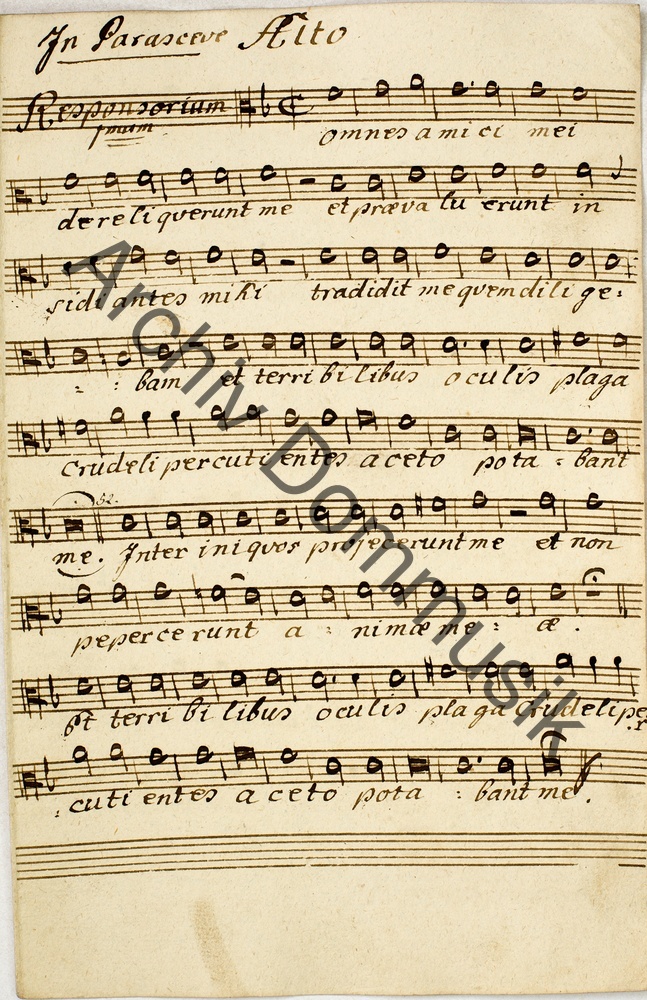 In Parasceve Alto
Responsorium
omnes amici mei
1mum
dereliqverunt me et prævaluerunt in
sidiantes mihi tradidit me qvem dilige:
: bam et terribilibus oculis plaga
Crudeli percutientes aceto pota : bant
me. Inter iniqvos projecerunt me et non
pepercerunt a : nimæ me : æ .
Et terribilibus oculis plaga Crudeli per
: cutientes aceto pota : bant me.
Archiv Dommusik